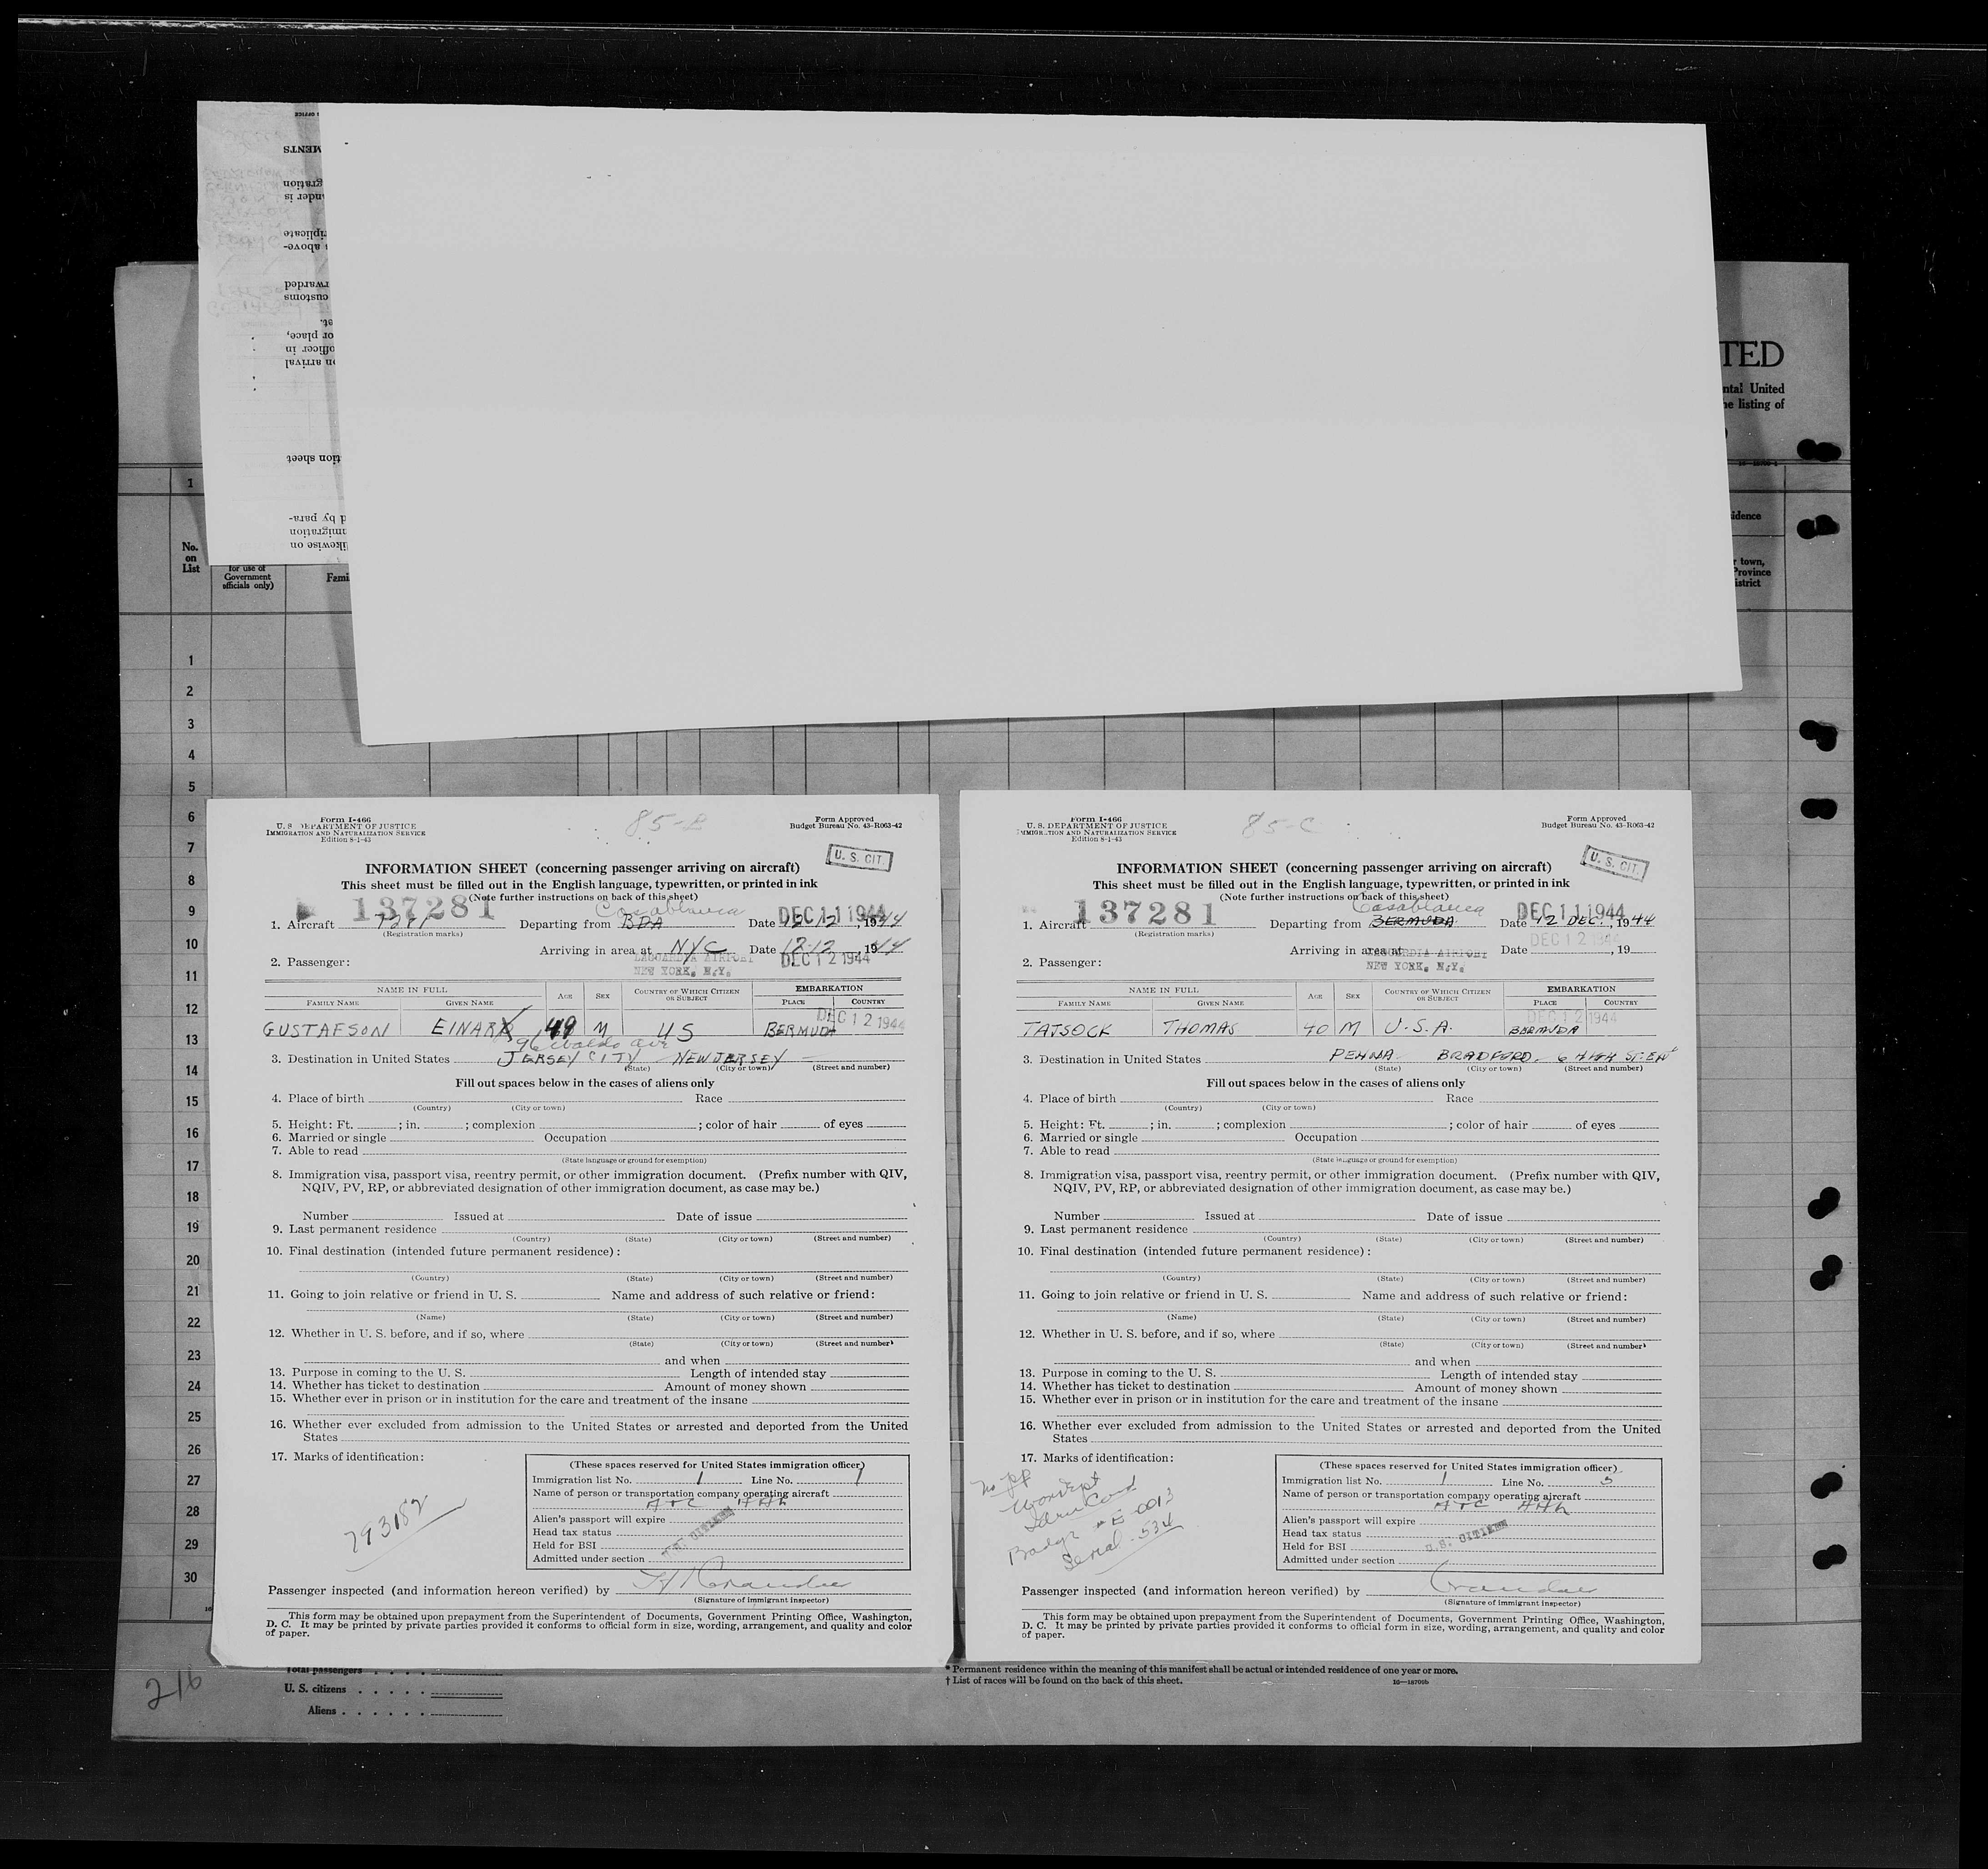 TED
ntal United
he listing of
1
idence
No.
on
List
for use of
Government
officials only)
Fami
r town,
Province
istrict
1
2
3
4
5
6
7
8
9
10
11
12
13
14
15
16
17
18
19
20
21
22
23
24
25
26
27
28
29
30
Form I-466
U. S. DEPARTMENT OF JUSTICE
IMMIGRATION AND NATURALIZATION SERVICE
Edition 8-1-43
85-B
Form Approved
Budget Bureau No. 43-R063-42
U. S. CIT.
INFORMATION SHEET (concerning passenger arriving on aircraft)
This sheet must be filled out in the English language, typewritten, or printed in ink
(Note further instructions on back of this sheet)
137281 Casablanca DEC 11 1944
1. Aircraft 7281 Departing from BDA Date 12-12, 1944
(Registration marks)
Arriving in area at NYC Date 12-12, 1944
LAGUARDIA AIRPORT DEC 12 1944
2. Passenger: NEW YORK, N.Y.
NAME IN FULL AGE SEX COUNTRY OF WHICH CITIZEN OR SUBJECT EMBARKATION
FAMILY NAME GIVEN NAME PLACE COUNTRY
DEC 12 1944
GUSTAFSON EINAR 49 M US BERMUDA
96 Waldo Ave
3. Destination in United States JERSEY CITY NEW JERSEY
(State) (City or town) (Street and number)
Fill out spaces below in the cases of aliens only
4. Place of birth Race
(Country) (City or town)
5. Height: Ft. ; in. ; complexion ; color of hair of eyes
6. Married or single Occupation
7. Able to read
(State language or ground for exemption)
8. Immigration visa, passport visa, reentry permit, or other immigration document. (Prefix number with QIV,
NQIV, PV, RP, or abbreviated designation of other immigration document, as case may be.)
Number Issued at Date of issue
9. Last permanent residence
(Country) (State) (City or town) (Street and number)
10. Final destination (intended future permanent residence):
(Country) (State) (City or town) (Street and number)
11. Going to join relative or friend in U. S. Name and address of such relative or friend:
(Name) (State) (City or town) (Street and number)
12. Whether in U. S. before, and if so, where
(State) (City or town) (Street and number)
and when
13. Purpose in coming to the U. S. Length of intended stay
14. Whether has ticket to destination Amount of money shown
15. Whether ever in prison or in institution for the care and treatment of the insane
16. Whether ever excluded from admission to the United States or arrested and deported from the United
States
17. Marks of identification:
793182
(These spaces reserved for United States immigration officer)
Immigration list No. 1 Line No. 1
Name of person or transportation company operating aircraft
ATC AAL
Alien's passport will expire
Head tax status
Held for BSI
U.S. CITIZEN
Admitted under section
Passenger inspected (and information hereon verified) by
(Signature of immigrant inspector)
This form may be obtained upon prepayment from the Superintendent of Documents, Government Printing Office, Washington,
D. C. It may be printed by private parties provided it conforms to official form in size, wording, arrangement, and quality and color
of paper.
Form I-466
U. S. DEPARTMENT OF JUSTICE
IMMIGRATION AND NATURALIZATION SERVICE
Edition 8-1-43
85-C
Form Approved
Budget Bureau No. 43-R063-42
U. S. CIT.
INFORMATION SHEET (concerning passenger arriving on aircraft)
This sheet must be filled out in the English language, typewritten, or printed in ink
(Note further instructions on back of this sheet)
137281 Casablanca DEC 11 1944
1. Aircraft Departing from BERMUDA Date 12 DEC., 1944
(Registration marks) DEC 12 1944
Arriving in area at LAGUARDIA AIRPORT Date , 19
2. Passenger: NEW YORK, N.Y.
NAME IN FULL AGE SEX COUNTRY OF WHICH CITIZEN OR SUBJECT EMBARKATION
FAMILY NAME GIVEN NAME PLACE COUNTRY
DEC 12 1944
TAJSOCK THOMAS 40 M U.S.A. BERMUDA
3. Destination in United States PENNA BRADFORD 6 HIGH ST.
(State) (City or town) (Street and number)
Fill out spaces below in the cases of aliens only
4. Place of birth Race
(Country) (City or town)
5. Height: Ft. ; in. ; complexion ; color of hair of eyes
6. Married or single Occupation
7. Able to read
(State language or ground for exemption)
8. Immigration visa, passport visa, reentry permit, or other immigration document. (Prefix number with QIV,
NQIV, PV, RP, or abbreviated designation of other immigration document, as case may be.)
Number Issued at Date of issue
9. Last permanent residence
(Country) (State) (City or town) (Street and number)
10. Final destination (intended future permanent residence):
(Country) (State) (City or town) (Street and number)
11. Going to join relative or friend in U. S. Name and address of such relative or friend:
(Name) (State) (City or town) (Street and number)
12. Whether in U. S. before, and if so, where
(State) (City or town) (Street and number)
and when
13. Purpose in coming to the U. S. Length of intended stay
14. Whether has ticket to destination Amount of money shown
15. Whether ever in prison or in institution for the care and treatment of the insane
16. Whether ever excluded from admission to the United States or arrested and deported from the United
States
17. Marks of identification:
no pp
Card
Badge # E-0013
Serial 534
(These spaces reserved for United States immigration officer)
Immigration list No. 1 Line No. 3
Name of person or transportation company operating aircraft
ATC AAL
Alien's passport will expire
Head tax status
Held for BSI U.S. CITIZEN
Admitted under section
Passenger inspected (and information hereon verified) by
(Signature of immigrant inspector)
This form may be obtained upon prepayment from the Superintendent of Documents, Government Printing Office, Washington,
D. C. It may be printed by private parties provided it conforms to official form in size, wording, arrangement, and quality and color
of paper.
216
Total passengers
U. S. citizens
Aliens
* Permanent residence within the meaning of this manifest shall be actual or intended residence of one year or more.
† List of races will be found on the back of this sheet.
16—18709b